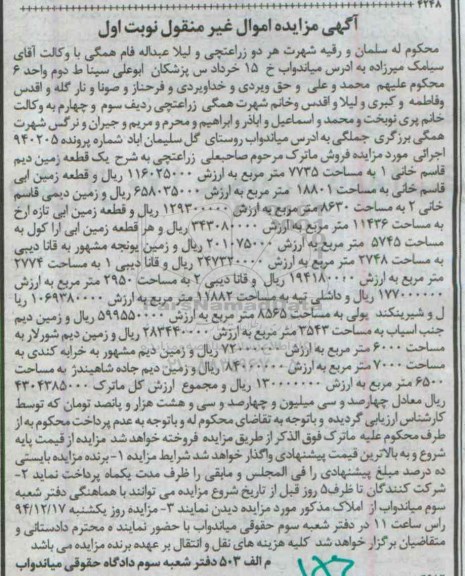 ۴۲۴۸
آگهی مزایده اموال غیر منقول نوبت اول
محکوم له سلمان و رقیه شهرت هر دو زراعتچی و لیلا عبداله فام همگی با وکالت آقای
سیامک میرزاده به ادرس میاندواب خ ۱۵ خرداد س پزشکان ابوعلی سینا ط دوم واحد ۶
محکوم علیهم محمد و علی و حق ویردی و خداویردی و فرحناز و صونا و نار گله و اقدس
وفاطمه و کبری و لیلا و اقدس وخانم شهرت همگی زراعتچی ردیف سوم و چهارم به وکالت
خانم پری نوبخت و محمد و اسماعیل و اباذر و ابراهیم و محرم و مریم و جیران و نرگس شهرت
همگی برزگری جملگی به ادرس میاندواب روستای گل سلیمان اباد شماره پرونده ۹۴۰۲۰۵
اجرائی مورد مزایده فروش ماترک مرحوم صاحبعلی زراعتچی به شرح یک قطعه زمین دیم
قاسم خانی ۱ به مساحت ۷۷۳۵ متر مربع به ارزش ۱۱۶۰۲۵۰۰۰ ریال و قطعه زمین ابی
قاسم خانی به مساحت ۱۸۸۰۱ متر مربع به ارزش ۶۵۸۰۳۵۰۰۰ ریال و زمین دیمی قاسم
خانی ۲ به مساحت ۸۶۳۰ متر مربع به ارزش ۱۲۹۳۰۰۰۰۰ ریال و قطعه زمین ابی تازه ارخ
به مساحت ۱۱۴۳۶ متر مربع به ارزش ۳۴۳۰۸۰۰۰۰ ریال و هر قطعه زمین ابی ارا کول به
مساحت ۵۷۴۵ متر مربع به ارزش ۲۰۱۰۷۵۰۰۰ ریال و زمین یونجه مشهور به قانا دیبی
به مساحت ۲۷۴۸ متر مربع به ارزش ۲۴۷۳۲۰۰۰۰ ریال و قانا دیبی ۱ به مساحت ۲۷۷۴
متر مربع به ارزش ۱۹۴۱۸۰۰۰۰ ریال و قانا دیبی ۲ به مساحت ۲۹۵۰ متر مربع به ارزش
۱۷۷۰۰۰۰۰۰ ریال و داشلی تپه به مساحت ۱۱۸۸۲ متر مربع به ارزش ۱۰۶۹۳۸۰۰۰۰ ریا
ل و شیرینکند یولی به مساحت ۸۵۶۵ متر مربع به ارزش ۵۹۹۵۵۰۰۰۰ ریال و زمین دیم
جنب اسیاب به مساحت ۳۵۴۳ متر مربع به ارزش ۲۸۳۴۴۰۰۰۰ ریال و زمین دیم شورلار به
مساحت ۶۰۰۰ متر مربع به ارزش ۷۲۰۰۰۰۰۰ ریال و زمین دیم مشهور به خرابه کندی به
مساحت ۷۰۰۰ متر مربع به ارزش ۸۴۰۶۰۰۰۰ ریال و زمین دیم جاده شاهیندژ به مساحت
۶۵۰۰ متر مربع به ارزش ۱۳۰۰۰۰۰۰۰ ریال و مجموع ارزش کل ماترک ۴۳۰۴۳۸۵۰۰۰
ریال معادل چهارصد و سی میلیون و چهارصد و سی و هشت هزار و پانصد تومان که توسط
کارشناس ارزیابی گردیده و باتوجه به تقاضای محکوم له و باتوجه به عدم پرداخت محکوم به از
طرف محکوم علیه ماترک فوق الذکر از طریق مزایده فروخته خواهد شد مزایده از قیمت پایه
شروع و به بالاترین قیمت پیشنهادی واگذار خواهد شد شرایط مزایده ۱- برنده مزایده بایستی
ده درصد مبلغ پیشنهادی را فی المجلس و مابقی را ظرف مدت یکماه پرداخت نماید ۲-
شرکت کنندگان تا ظرف۵ روز قبل از تاریخ شروع مزایده می توانند با هماهنگی دفتر شعبه
سوم میاندواب از املاک مذکور مورد مزایده دیدن نمایند ۳- مزایده روز یکشنبه ۹۴/۱۲/۱۷
راس ساعت ۱۱ در دفتر شعبه سوم حقوقی میاندواب با حضور نماینده محترم دادستانی و
متقاضیان برگزار خواهد شد کلیه هزینه های نقل و انتقال بر عهده برنده مزایده می باشد
م الف ۵۰۳ دفتر شعبه سوم دادگاه حقوقی میاندواب